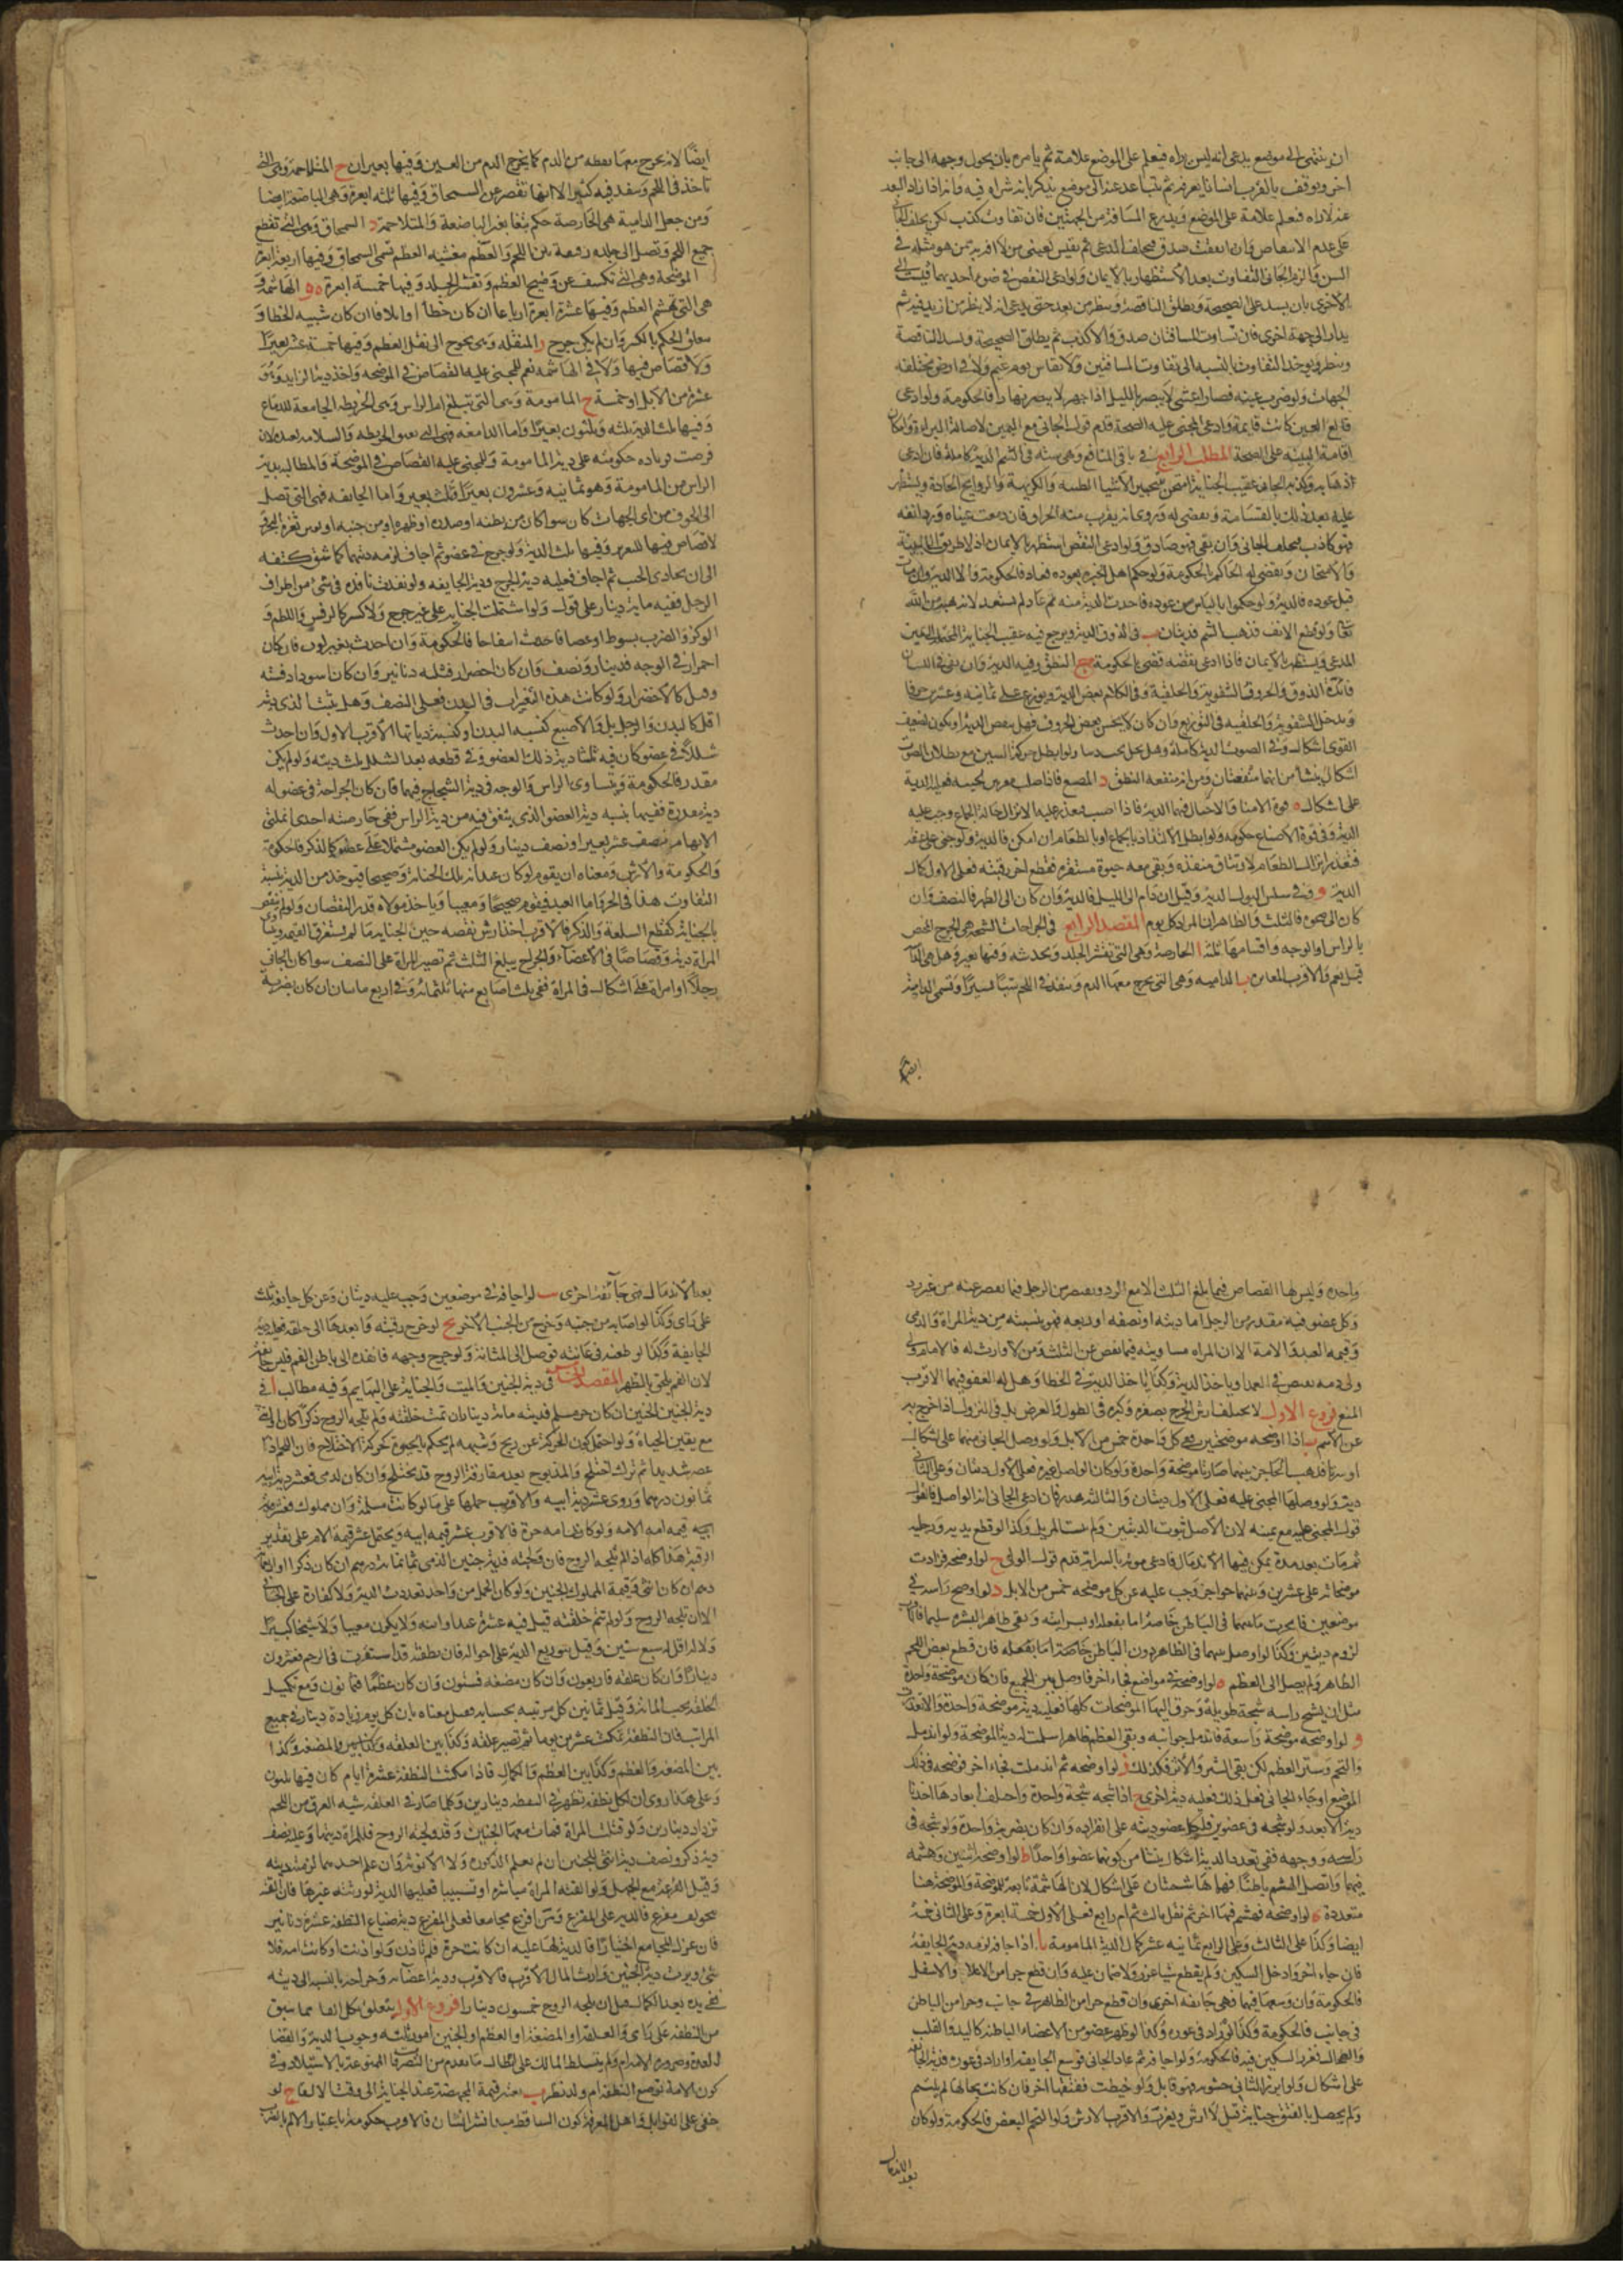 ان ينتهى الى موضع يدعى انه ليس يراه فيعلم على الموضع علامة ثم يامره بان يحول وجهه الى جانب
اخر ويوقف بالقرب انسانا يعرفه ثم يتباعد عنه الى موضع يذكر بانه شراه فيه فانه اذا زاد البعد
عنه لا يراه فيعلم علامة على الموضع ويذرع المسافة من الجهتين فان تفاوت كذب لكن يحلف الجانى
على عدم الانتقاص وان اتفقت صدق فيحلف المدعى ثم يقيس بعينى من لا افة به ممن هو مثله فى
السن والزم الجانى التفاوت بعد الاستظهار بالايمان ولو ادعى النقص فى ضوء احديهما قيست الى
الاخرى بان يسد على الصحيحة ويطلق الناقصة وينظر من بعد حتى يدعى انه لا ينظر من ازيد فيه ثم
يدار الى جهة اخرى فان تساوت المسافتان صدق والا كذب ثم يطلق الصحيحة ويسد الناقصة
وينظر ويوخذ التفاوت بالنسبه الى تفاوت المسافتين ولا تقاس يوم غيم ولا فى ارض مختلفة
الجهات ولو ضرب عينه فصار اعشى لا يبصر بالليل او اجهر لا يبصر نهارا فالحكومة ولو ادعى
قالع العين كانت قايمة وادعى المجنى عليه الصحة قدم قول الجانى مع اليمين لاصالة البراءة وامكان
اقامة البينه على الصحة المطلب الرابع فى باقى المنافع وهى سته ا فى الشم الدية كاملة فان ادعى
اذهابه وكذبه الجانى عقيب الجناية امتحن بتجمير الاشيا الطيبه والكريهة والروايح الحادة ويستظهر
عليه بعد ذلك بالقسامة ويقضى له وروى انه يقرب منه الحراق فان دمعت عيناه ورد انفه
فهو كاذب فيحلف الجانى وان بقى فهو صادق ولو ادعى النقص استظهر بالايمان اذ لا طريق الى البينة
والامتحان ويقضى له الحاكم بالحكومة ولو حكم اهل الخبرة بعوده فعاد فالحكومة والا الدية وان مات
قبل عوده فالدية ولو حكموا بالياس من عوده فاخذت الدية منه ثم عاد لم يستعد لانه هبة من الله
تعالى ولو قطع الانف فذهب الشم فديتان ب فى الذوق الدية ويرجع فيه عقيب الجناية المحتملة الى يمين
المدعى ويستظهر بالايمان فاذا ادعى نقصه قضى بالحكومة ج النطق وفيه الدية وان بقى فى اللسان
فائدة الذوق والحروف الشفوية والحلقية وفى الكلام بعض الدية ويوزع على ثمانيه وعشرين حرفا
ويدخل الشفوية والحلقيه فى التوزيع وان كان لا يحسن بعض الحروف فهل ينقص الدية او يكون كضعيف
القوى اشكال وفى الصوت الدية كاملة
اشكال ينشأ من انهما منفعتان ومن انه منفعه النطق د المضغ فاذا صلب مغرس لحييه فعليه الدية
على اشكال ه قوة الامنا والاحبال فيهما الدية فاذا اصيب فتعذر عليه الانزال حالة الجماع وجب عليه
الدية وفى قوة الارضاع حكومة ولو ابطل الالتذاذ بالجماع او بالطعام ان امكن فالدية ولو جنى على عنقه
فتعذر انزال الطعام لارتتاق منفذه وبقى معه حيوة مستقرة فقطع اخر رقبته فعلى الاول كمال
الدية و وفى سلس البول الدية وقيل ان دام الى الليل فالدية وان كان الى الظهر فالنصف وان
كان الى ضحوة فالثلث والظاهر ان المراد كل يوم المقصد الرابع فى الجراحات الشجة هى الجرح المختص
بالراس او الوجه واقسامها ثمانية ا الحارصة وهى التى تقشر الجلد وتخدشه وفيها بعير وهل هى الدامية
قيل نعم والاقرب المغايرة ب الداميه وهى التى تخرج معها الدم وتنفذ فى اللحم شيئا يسيرا وتسمى الدامعة
ايضا
ايضا لانه يخرج معها نقطه من الدم كما يخرج الدم من العين وفيها بعيران ج المتلاحمة وهى التى
تاخذ فى اللحم وتنفذ فيه كثيرا الا انها تقصر عن السمحاق وفيها ثلثه ابعرة وهى الباضعة ايضا
ومن جعل الدامية هى الحارصة حكم بتغاير الباضعة والمتلاحمة د السمحاق وهى التى تقطع
جميع اللحم وتصل الى جلدة رقيقة بين اللحم والعظم مغشيه العظم تسمى السمحاق وفيها اربعة ابعرة
ه الموضحة وهى التى تكشف عن وضح العظم وتقشر الجلد وفيها خمسة ابعرة و الهاشمة و
هى التى تهشم العظم وفيها عشرة ابعرة ارباعا ان كان خطأ او اثلاثا ان كان شبيه الخطا و
معلق الحكم بالكسر وان لم يكن جرح ز المنقلة وهى تحوج الى نقل العظم وفيها خمسة عشر بعيرا
ولا قصاص فيها ولا فى الهاشمه نعم للمجنى عليه القصاص فى الموضحه واخذ دية الزايد وهو
عشرة من الابل او خمسة ح المامومة وهى التى تبلغ ام الراس وهى الخريطه الجامعة للدماغ
وفيها ثلث الدية ثلثه وثلثون بعيرا واما الدامغه فهى التى تفتق الخريطه والسلامه بعيدة فان
فرضت فزياده حكومته على دية المامومة وللمجنى عليه القصاص فى الموضحة والمطالبة بدية
الراس من المامومة وهو ثمانيه وعشرون بعيرا وثلث بعير واما الجايفه فهى التى تصل
الى الجوف من اى الجهات كان سوا كان من بطنه او صدره او ظهره او من جنبه او ثغرة النحر و
لا قصاص فيها للتغرير وفيها ثلث الدية ولو جرح فى عضو ثم اجاف لزمه ديتهما كما لو شق كتفه
الى ان يحاذى الجنب ثم اجاف فعليه دية الجرح ودية الجايفه ولو نفذت نافذة فى شىء من اطراف
الرجل ففيه ماية دينار على قول ولو اشتملت الجناية على غير جرح ولا كسر كالرفس واللطم و
الوكز والضرب بسوط او عصا فاحدث انتفاخا فالحكومة وان احدث تغير لون فان كان
احمرارا فى الوجه فدينار ونصف وان كان اخضرار فثلثه دنانير وان كان اسودادا فسته
وقيل كالاخضرار ولو كانت هذه التغيرات فى البدن فعلى النصف وهل يثبت الذى ديته
اقل كاليدين والرجلين والاصبع كنسبه البدن او كنسبة دياتها الاقرب الاول وان احدث
شللا فى عضو كان فيه ثلثا دية ذلك العضو وفى قطعه بعد الشلل ثلث ديته ولو لم يكن
مقدر فالحكومة ويتساوى الراس والوجه فى دية الشجاج فيهما فان كان الجراحة فى عضو له
دية مقدرة ففيها بنسبه دية العضو الذى يتفق فيه من دية الراس ففى حارصته احدى انملتى
الابهام نصف عشر بعير او نصف دينار ولو لم يكن العضو مشتملا على عظم كالذكر فالحكومة
والحكومة والارش ومعناه ان يقوم لو كان عبدا بتلك الجناية وصحيحا فيوخذ من الدية بنسبة
التفاوت هذا فى الحر واما العبد فيقوم صحيحا ومعيبا وياخذ مولاه قدر النقصان ولو لم ينقص
بالجناية كقطع السلعة والذكر فالاقرب اخذ ارش نقصه حين الجناية ما لم يستغرق القيمة ويتساوى
المراة دية وقصاصا فى الاعضاء والجراح يبلغ الثلث ثم تصير المراة على النصف سوا كان الجانى
رجلا او امراة على اشكال ففى المراة ففى ثلث اصابع منها ثلثمائة وفى اربع مايتان ان كان بضربة
واحدة وليس لها القصاص فيما بلغ الثلث الا مع الرد ويقتص من الرجل فيما نقص عنه من غير رد
وكل عضو فيه مقدر من الرجل اما ديته او نصفه او ربعه فهو بنسبته من دية المراة والذمى
وقيمه العبد والامة الا ان المراه مساويته فيما نقص عن الثلث ومن لا وارث له فالامام ولى
ولى دمه يقتص فى العمد او ياخذ الدية وكذا ياخذ الدية فى الخطا وهل له العفو فيهما الاقرب
المنع فروع الاول لا يختلف ارش الجرح بصغره وكبره فى الطول والعرض بل فى النزول اذا خرج به
عن الاسم ب اذا اوضحه موضحتين ففى كل واحدة خمس من الابل ولو وصل الجانى بينهما على اشكال
او سرتا فذهب الحاجز بينهما صارتا موضحة واحدة ولو كان الواصل غيره فعلى الاول ديتان وعلى الثانى
دية ولو وصلها المجنى عليه فعلى الاول ديتان والثالثه هدر فان ادعى الجانى انه الواصل فالقول
قول المجنى عليه مع يمينه لان الاصل ثبوت الديتين ولم يثبت المزيل وكذا لو قطع يديه ورجليه
ثم مات بعد مدة يمكن فيها الاندمال فادعى موته بالسراية قدم قول الولى ج لو اوضحه فزادت
موضحاته على عشرين وبينهما حواجز وجب عليه عن كل موضحه خمس من الابل د لو اوضح راسه فى
موضعين فانخرق ما بينهما فى الباطن خاصة اما بفعله او بسرايته وبقى ظاهر البشره سليما فالاقرب
لزوم ديتين وكذا لو وصل بينهما فى الظاهر دون الباطن خاصة اما بفعله فان قطع بعض اللحم
الظاهر ولم يصل الى العظم ه لو اوضحه فى مواضع فجاء اخر فاوصل بين الجميع فان كان موضحة واحدة
مثل ان يشج راسه شجة طويلة وخرق اليها الموضحات كلها فعليه دية موضحة واحدة والا تعددت
و لو اوضحه موضحة واسعة فاندمل جوانبه وبقى العظم ظاهرا سلمت له دية الموضحة ولو اندمل
والتحم وستر العظم لكن بقى الشين والاثر فكذلك ز لو اوضحه ثم اندملت فجاء اخر فوضحه فى ذلك
الموضع او جاء الجانى فعل ذلك فعليه دية اخرى ح اذا شجه شجة واحدة واختلف ابعادها اخذنا
دية الابعد ولو شجه فى عضوين فلكل عضو ديته على انفراده وان كان بضربة واحدة ولو شجه فى
راسه ووجهه ففى تعدد الدية اشكال ينشا من كونهما عضوا واحدا ط لو اوضحه اثنتين وهشمه
فيهما واتصل الهشم باطنا فهما هاشمتان على اشكال لان الهاشمة تابعة للموضحة والموضحة هنا
متعددة ى لو اوضحه فهشم فيها اخر ثم نقل ثالث ثم ام رابع فعلى الاول خمسة ابعرة وعلى الثانى خمسة
ايضا وكذا على الثالث وعلى الرابع ثمانيه عشر كمال دية المامومة يا اذا اجافه لزمه دية الجايفة
فان جاء اخر وادخل السكين ولم يقطع شيا عزر ولا ضمان عليه وان قطع جزءا من الاعلى والاسفل
فالحكومة وان وسعها فيهما فهى جايفه اخرى وان قطع جزءا من الظاهر فى جانب وجزءا من الباطن
فى جانب فالحكومة وكذا لو زاد فى غوره وكذا لو ظهر عضو من الاعضاء الباطنة كالكبد والقلب
والطحال فغرز السكين فيه فالحكومة ولو اجافه ثم عاد الجانى فوسع الجايفه او زاد فى غوره فدية الجايفه
على اشكال ولو ابرز الثانى حشوته فهو قاتل ولو خيطت ففتقها اخر فان كانت بحالها لم يلتئم
ولم يحصل بالفتق جناية قيل لا ارش ويعزر والاقرب الارش ولو التحم البعض فالحكومة ولو كان
بعد الاندمال
بعد الاندمال فهى جائفة اخرى يب لو اجافه فى موضعين وجب عليه ديتان وعن كل جايفة ثلث
على راى وكذا لو اصابه من جنبه وخرج من الجنب الاخر يج لو جرح رقبته فانفذها الى حلقه فعليه دية
الجايفة وكذا لو طعنه فى عانته فوصل الى المثانة ولو جرح وجهه فانفذه الى باطن الفم فليس جايفة
لان الفم ملحق بالظاهر المقصد الخامس فى دية الجنين والميت والجناية على البهايم وفيه مطالب ا فى
دية الجنين الجنين ان كان حر مسلم فديته ماية دينار ان تمت خلقته ولم تلجه الروح ذكرا كان او انثى
مع يقين الحياة ولو احتمل كون الحركة عن ريح وشبهه لم يحكم بالحيوة كحركة الاختلاج فان اللحم اذا
عصر شديدا ثم ترك اختلج والمذبوح بعد مفارقة الروح قد يختلج وان كان لذمى فعشر دية ابيه
ثمانون درهما وروى عشر دية امه والاقرب حملها على ما لو كانت مسلمة وان مملوك فعشر قيمة
امه قيمه امه الامه ولو كان امه حرة فالاقرب عشر قيمه ابيه ويحتمل عشر قيمة الام على تقدير
الرقية هذا كله اذا لم تلجه الروح فان ولجته فدية جنين الذمى ثمانمائة درهم ان كان ذكرا او اربعمائة
درهم ان كان انثى وقيمة المملوك الجنين ولو كان الحمل من واحد تعددت الدية ولا كفارة على الجانى
الا ان تلجه الروح ولو لم تتم خلقته قيل فيه غرة عبد او امه ولا يكون معيبا ولا شيخا كبيرا
ولا له اقل من سبع سنين وقيل توزيع الدية على احواله فان نطفة قد استقرت فى الرحم فعشرون
دينارا وان كان علقه فاربعون وان كان مضغه فستون وان كان عظما فثمانون ومع تكميل
الخلقة يجب المائة وقيل ثمانين كل مرتبه بحسابه وقيل معناه بان كل يوم زيادة دينار فى جميع
المراتب فان النطفة تمكث عشرين يوما ثم تصير علقة وكذا بين العلقه وكذا بين والمضغة وكذا
بين المضغة والعظم وكذا بين العظم والكمال فاذا مكثت النطفة عشرة ايام كان فيها ثلثون
وعلى هذا روى ان لكل نقطه تظهر فى النطفه دينارين وكلما صار فى العلقة شبه العرق من اللحم
تزداد دينارين ولو قتلت المراة فمات معها الجنين وقد ولجته الروح فللمراة ديتها وعليه نصف
دية ذكر ونصف دية انثى للجنين ان لم يعلم الذكوره ولا الانوثة وان علم احدهما لزمت ديته
وقيل القرعة مع الجهل ولو القته المراة مباشرة او تسبيبا فعليها الدية لورثته غيرها فان القته
بتخويف مفزع فالديه على المفزع ومن افزع مجامعا فعلى المفزع دية ضياع النطفه عشرة دنانير
فان عزل المجامع اختيارا فالدية لها عليه ان كانت حرة فلم تاذن ولو اذنت او كانت امة فلا
شى ويرث دية الجنين وارث المال الاقرب فالاقرب ودية اعضائه وجراحه بالنسبه الى ديته
ففى يده بعد الكمال قبل ان تلجه الروح خمسون دينارا فروع الاول يتعلق بكل القا مما سبق
من النطفه على راى والعلقه او المضغة او العظم او الجنين امور ثلثه وجوب الدية وانقضا
العدة وصيروره الامة ام ولد فيتسلط المالك على ابطال ما تقدم من التصرفات الممنوعة بالاستيلاد وفى
كون الامة بوضع النطفة ام ولد نظر ب يعتبر قيمة المجهضة عند الجناية لا وقت الالقا ج لو
خفى على القوابل واهل المعرفة كون الساقط مبدا نشو انسان فالاقرب حكومة باعتبار الالم بالضرب